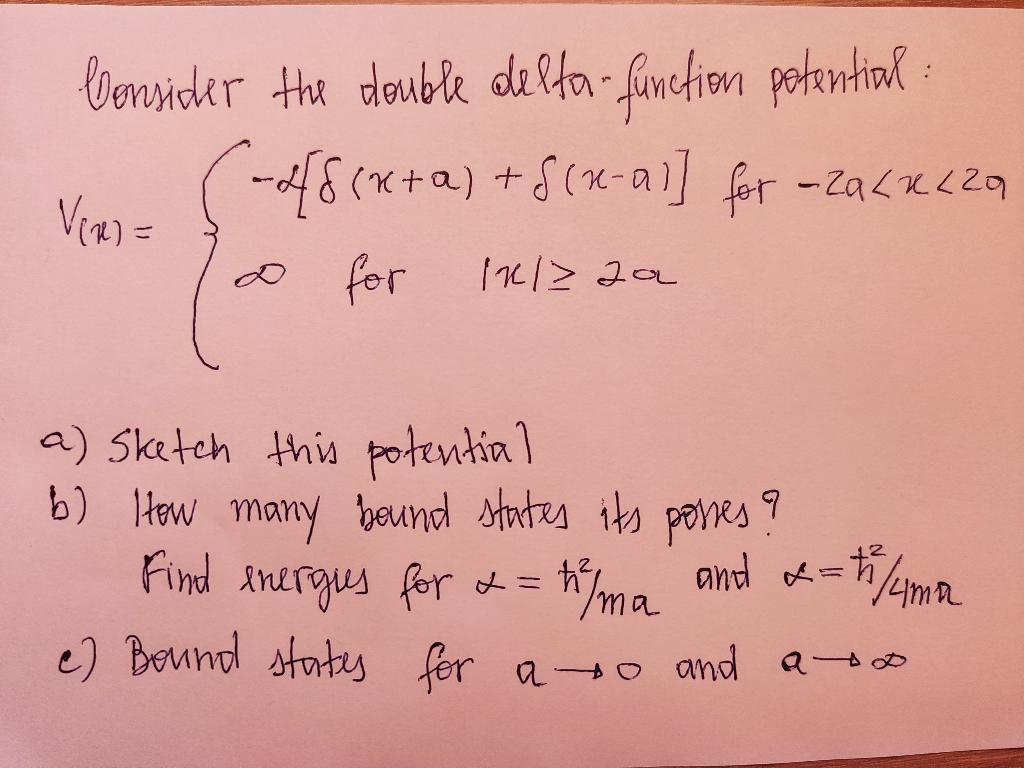 Consider the double delta-function potential:
V(x) = { -α[δ(x+a) + δ(x-a)] for -2a<x<2a
∞ for |x|≥ 2a
a) Sketch this potential
b) How many bound states its posses?
Find energies for α = ħ²/ma and α = ħ²/4ma
c) Bound states for a → 0 and a → ∞